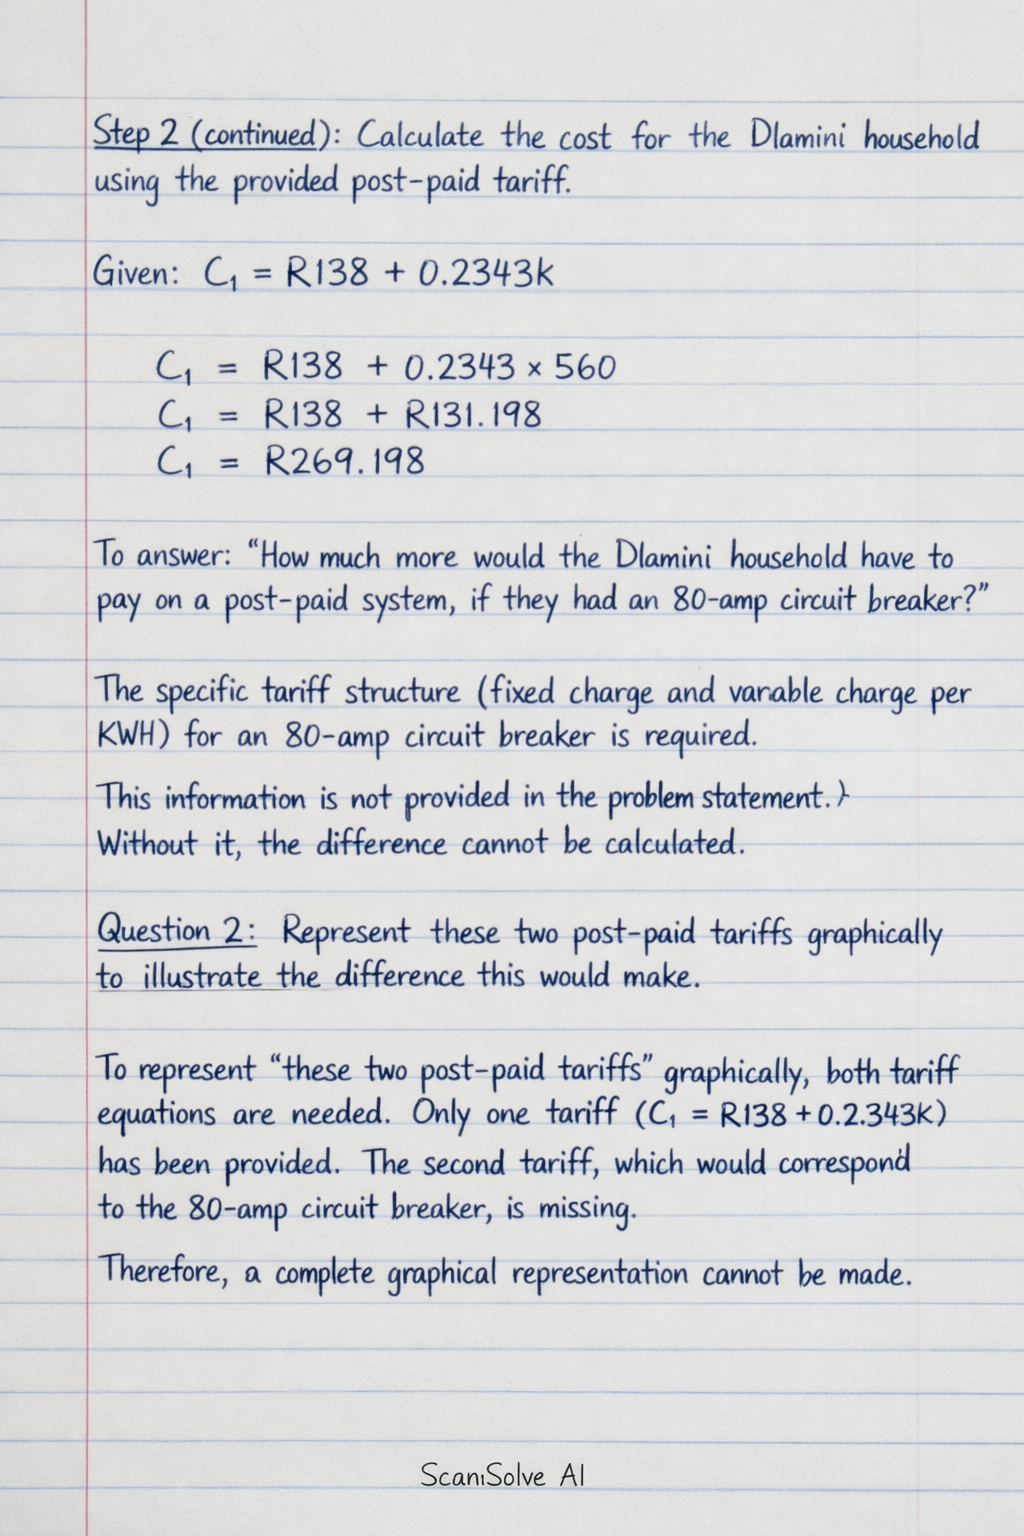 Step 2 (continued): Calculate the cost for the Dlamini household
using the provided post-paid tariff.
Given: C₁ = R138 + 0.2343k
C₁ = R138 + 0.2343 × 560
C₁ = R138 + R131.198
C₁ = R269.198
To answer: “How much more would the Dlamini household have to
pay on a post-paid system, if they had an 80-amp circuit breaker?”
The specific tariff structure (fixed charge and varable charge per
KWH) for an 80-amp circuit breaker is required.
This information is not provided in the problem statement.
Without it, the difference cannot be calculated.
Question 2: Represent these two post-paid tariffs graphically
to illustrate the difference this would make.
To represent “these two post-paid tariffs” graphically, both tariff
equations are needed. Only one tariff (C₁ = R138 + 0.2.343k)
has been provided. The second tariff, which would correspond
to the 80-amp circuit breaker, is missing.
Therefore, a complete graphical representation cannot be made.
ScanıSolve AI